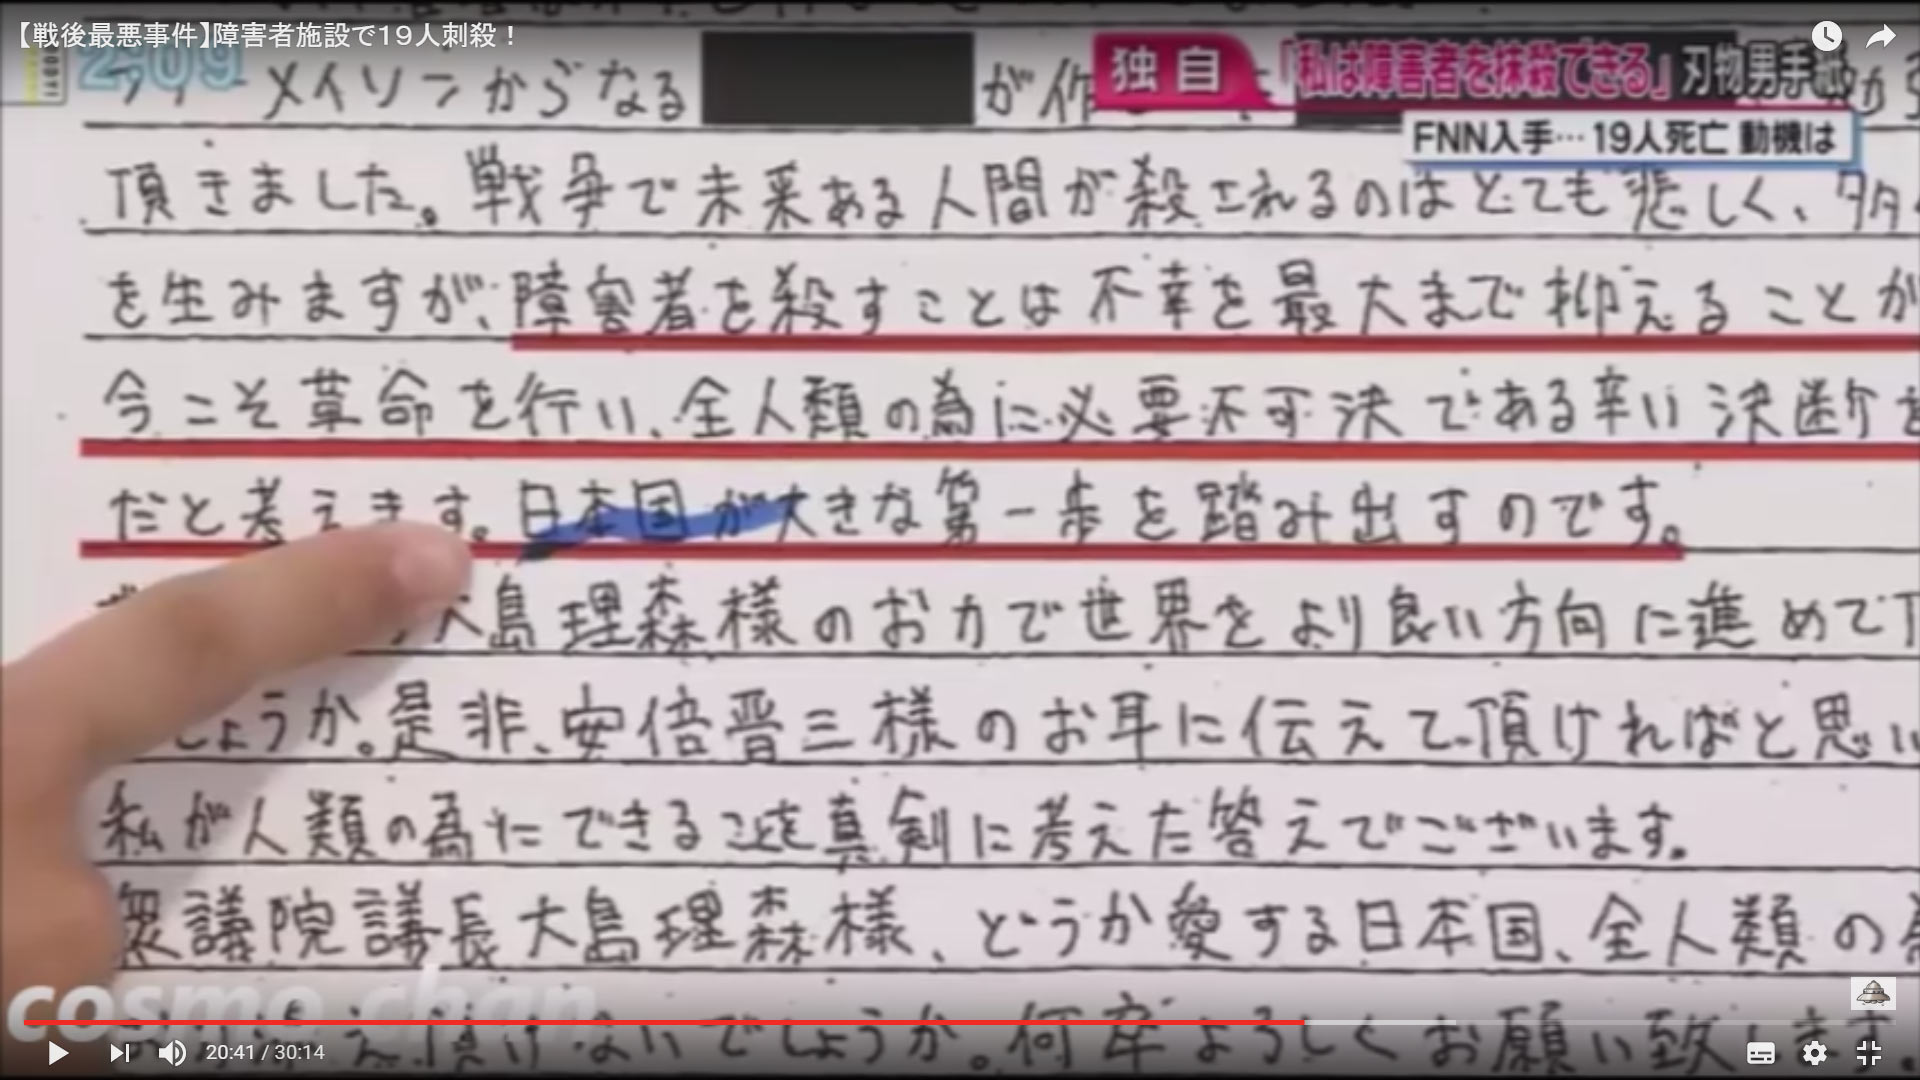 【戦後最悪事件】障害者施設で19人刺殺！
2:09
独自
「私は障害者を抹殺できる」刃物男手紙
FNN入手…19人死亡 動機は
メイソンからなる
が作
頂きました。戦争で未来ある人間が殺されるのはとても悲しく、
を生みますが、障害者を殺すことは不幸を最大まで抑えることが
今こそ革命を行い、全人類の為に必要不可決である辛い決断を
だと考えます。日本国が大きな第一歩を踏み出すのです。
大島理森様のお力で世界をより良い方向に進めて
しょうか。是非、安倍晋三様のお耳に伝えて頂ければと思い
私が人類の為にできることを真剣に考えた答えでございます。
衆議院議長大島理森様、どうか愛する日本国、全人類の
頂けないでしょうか。何卒よろしくお願い致します。
cosmo chan
20:41 / 30:14